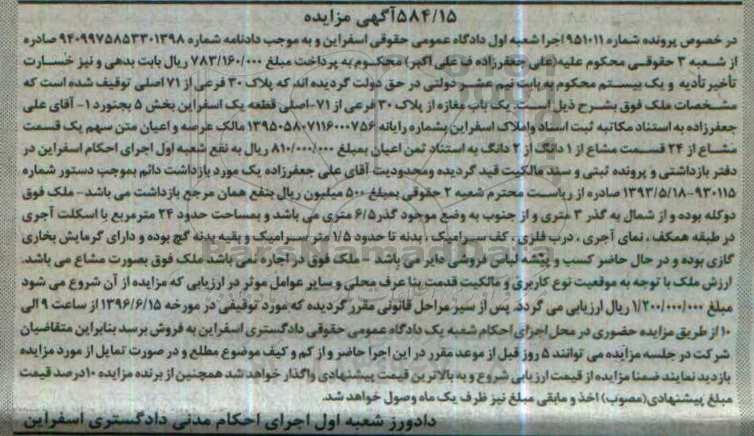 ۵۸۴/۱۵آگهی مزایده
در خصوص پرونده شماره ۹۵۱۰۱۱ اجرا شعبه اول دادگاه عمومی حقوقی اسفراین و به موجب دادنامه شماره ۹۴۰۹۹۷۵۸۵۳۳۰۱۳۹۸ صادره
از شعبه ۳ حقوقی محکوم علیه(علی جعفرزاده ف علی اکبر) محکوم به پرداخت مبلغ ۷۸۳/۱۶۰/۰۰۰ ریال بابت بدهی و نیز خسارت
تأخیر تأدیه و یک بیستم محکوم به بابت نیم عشر دولتی در حق دولت گردیده اند که پلاک ۳۰ فرعی از ۷۱ اصلی توقیف شده است که
مشخصات ملک فوق بشرح ذیل است. یک باب مغازه از پلاک ۳۰ فرعی از ۷۱-اصلی قطعه یک اسفراین بخش ۵ بجنورد ۱- آقای علی
جعفرزاده به استناد مکاتبه ثبت اسناد واملاک اسفراین بشماره رایانه ۱۳۹۵۰۵۸۰۷۱۱۶۰۰۰۷۵۶ مالک عرصه و اعیان متن سهم یک قسمت
مشاع از ۲۴ قسمت مشاع از ۱ دانگ از ۲ دانگ به استناد ثمن اعیان بمبلغ ۸۱۰/۰۰۰/۰۰۰ ریال به نفع شعبه اول اجرای احکام اسفراین در
دفتر بازداشتی و پرونده ثبتی و سند مالکیت قید گردیده ومحدودیت آقای علی جعفرزاده یک مورد بازداشت دائم بموجب دستور شماره
۹۳۰۱۱۵-۱۳۹۳/۵/۱۸ صادره از ریاست محترم شعبه ۲ حقوقی بمبلغ ۵۰۰ میلیون ریال بنفع همان مرجع بازداشت می باشد- ملک فوق
دوکله بوده و از شمال به گذر ۳ متری و از جنوب به وضع موجود گذر ۶/۵ متری می باشد و بمساحت حدود ۲۴ مترمربع با اسکلت آجری
در طبقه همکف ، نمای آجری ، درب فلزی ، کف سرامیک ، بدنه تا حدود ۱/۵ متر سرامیک و بقیه بدنه گچ بوده و دارای گرمایش بخاری
گازی بوده و در حال حاضر کسب و پیشه لباس فروشی دایر می باشد - ملک فوق در اجاره نمی باشد ملک فوق بصورت مشاع می باشد.
ارزش ملک با توجه به موقعیت نوع کاربری و مالکیت قدمت بنا عرف محلی و سایر عوامل موثر در ارزیابی که مزایده از آن شروع می شود
مبلغ ۱/۲۰۰/۰۰۰/۰۰۰ ریال ارزیابی می گردد. پس از سیر مراحل قانونی مقرر گردیده که مورد توقیفی در مورخه ۱۳۹۶/۶/۱۵ از ساعت ۹ الی
۱۰ از طریق مزایده حضوری در محل اجرای احکام شعبه یک دادگاه عمومی حقوقی دادگستری اسفراین به فروش برسد بنابراین متقاضیان
شرکت در جلسه مزایده می توانند ۵ روز قبل از موعد مقرر در این اجرا حاضر و از کم و کیف موضوع مطلع و در صورت تمایل از مورد مزایده
بازدید نمایند ضمنا مزایده از قیمت ارزیابی شروع و به بالاترین قیمت پیشنهادی واگذار خواهد شد همچنین از برنده مزایده ۱۰درصد قیمت
مبلغ پیشنهادی(مصوب) اخذ و مابقی مبلغ نیز ظرف یک ماه وصول خواهد شد.
دادورز شعبه اول اجرای احکام مدنی دادگستری اسفراین